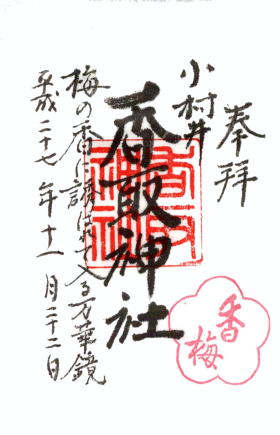 奉拝
小村井
香取神社
梅の香に誘はれて入る万華鏡
平成二十七年十一月二十二日
香取神社
香梅